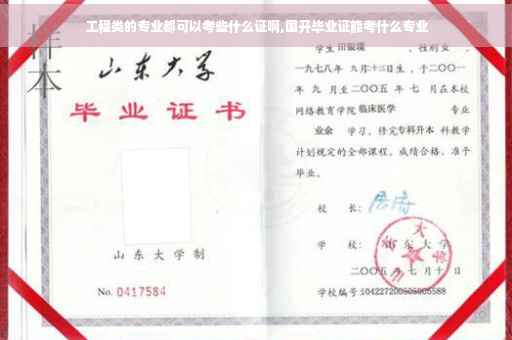 工程类的专业都可以考些什么证啊,国开毕业证能考什么专业
样本
山东大学
毕业证书
山东大学制
No. 0417584
学生田银瑞 ,性别女 ,
一九七八年 九月十三日生,于二〇〇一
年 九 月至二〇〇五 年 七 月在本校
网络教育学院临床医学 专业
业余 学习,修完专科升本 科教学
计划规定的全部课程,成绩合格,准予
毕业。
校 长:
学 校: 山东大学
二〇〇五年七月十日
学校编号:104227200505005588